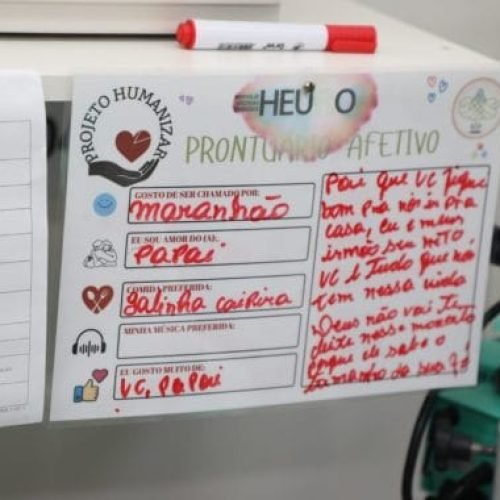 PROJETO HUMANIZAR
HEU O
PRONTUÁRIO AFETIVO
GOSTO DE SER CHAMADO POR:
maranhão
EU SOU AMOR DO (A):
PAPAi
COMIDA PREFERIDA:
galinha caipira
MINHA MÚSICA PREFERIDA:
EU GOSTO MUITO DE:
VC, PAPAi
Pai que VC fique
bom pra nós ir pra
casa, eu e meus
irmão seu mito
VC é Tudo que nós
tem nessa vida
Deus não vai Te
deixe nesse momento
porque ele sabe o
tamanho da sua fé